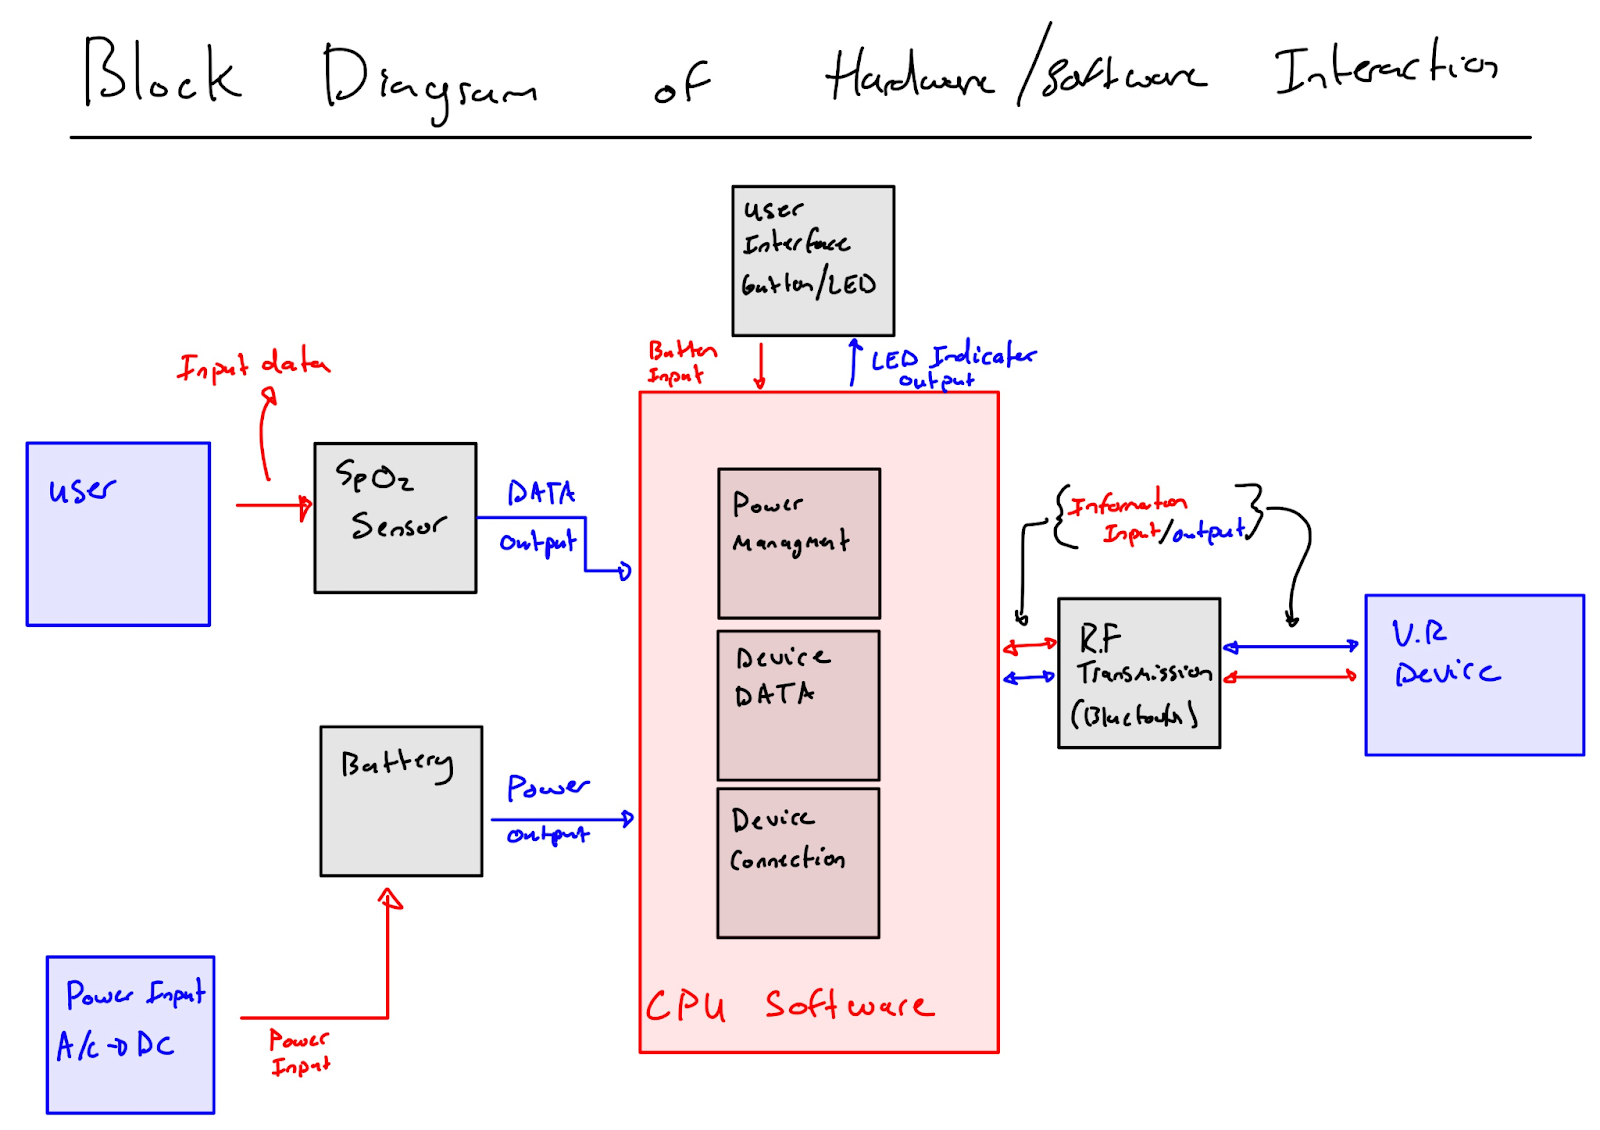 Block Diagram of Hardware/Software Interaction
user
Interface
button/LED
Button
Input
LED Indicator
output
Input data
user
SpO₂
Sensor
DATA
output
Power
Managment
Device
DATA
Device
Connection
CPU Software
{Information
Input/output}
R.F
Transmission
(Bluetooth)
V.R
Device
Battery
Power
output
Power Input
A/C → DC
Power
Input